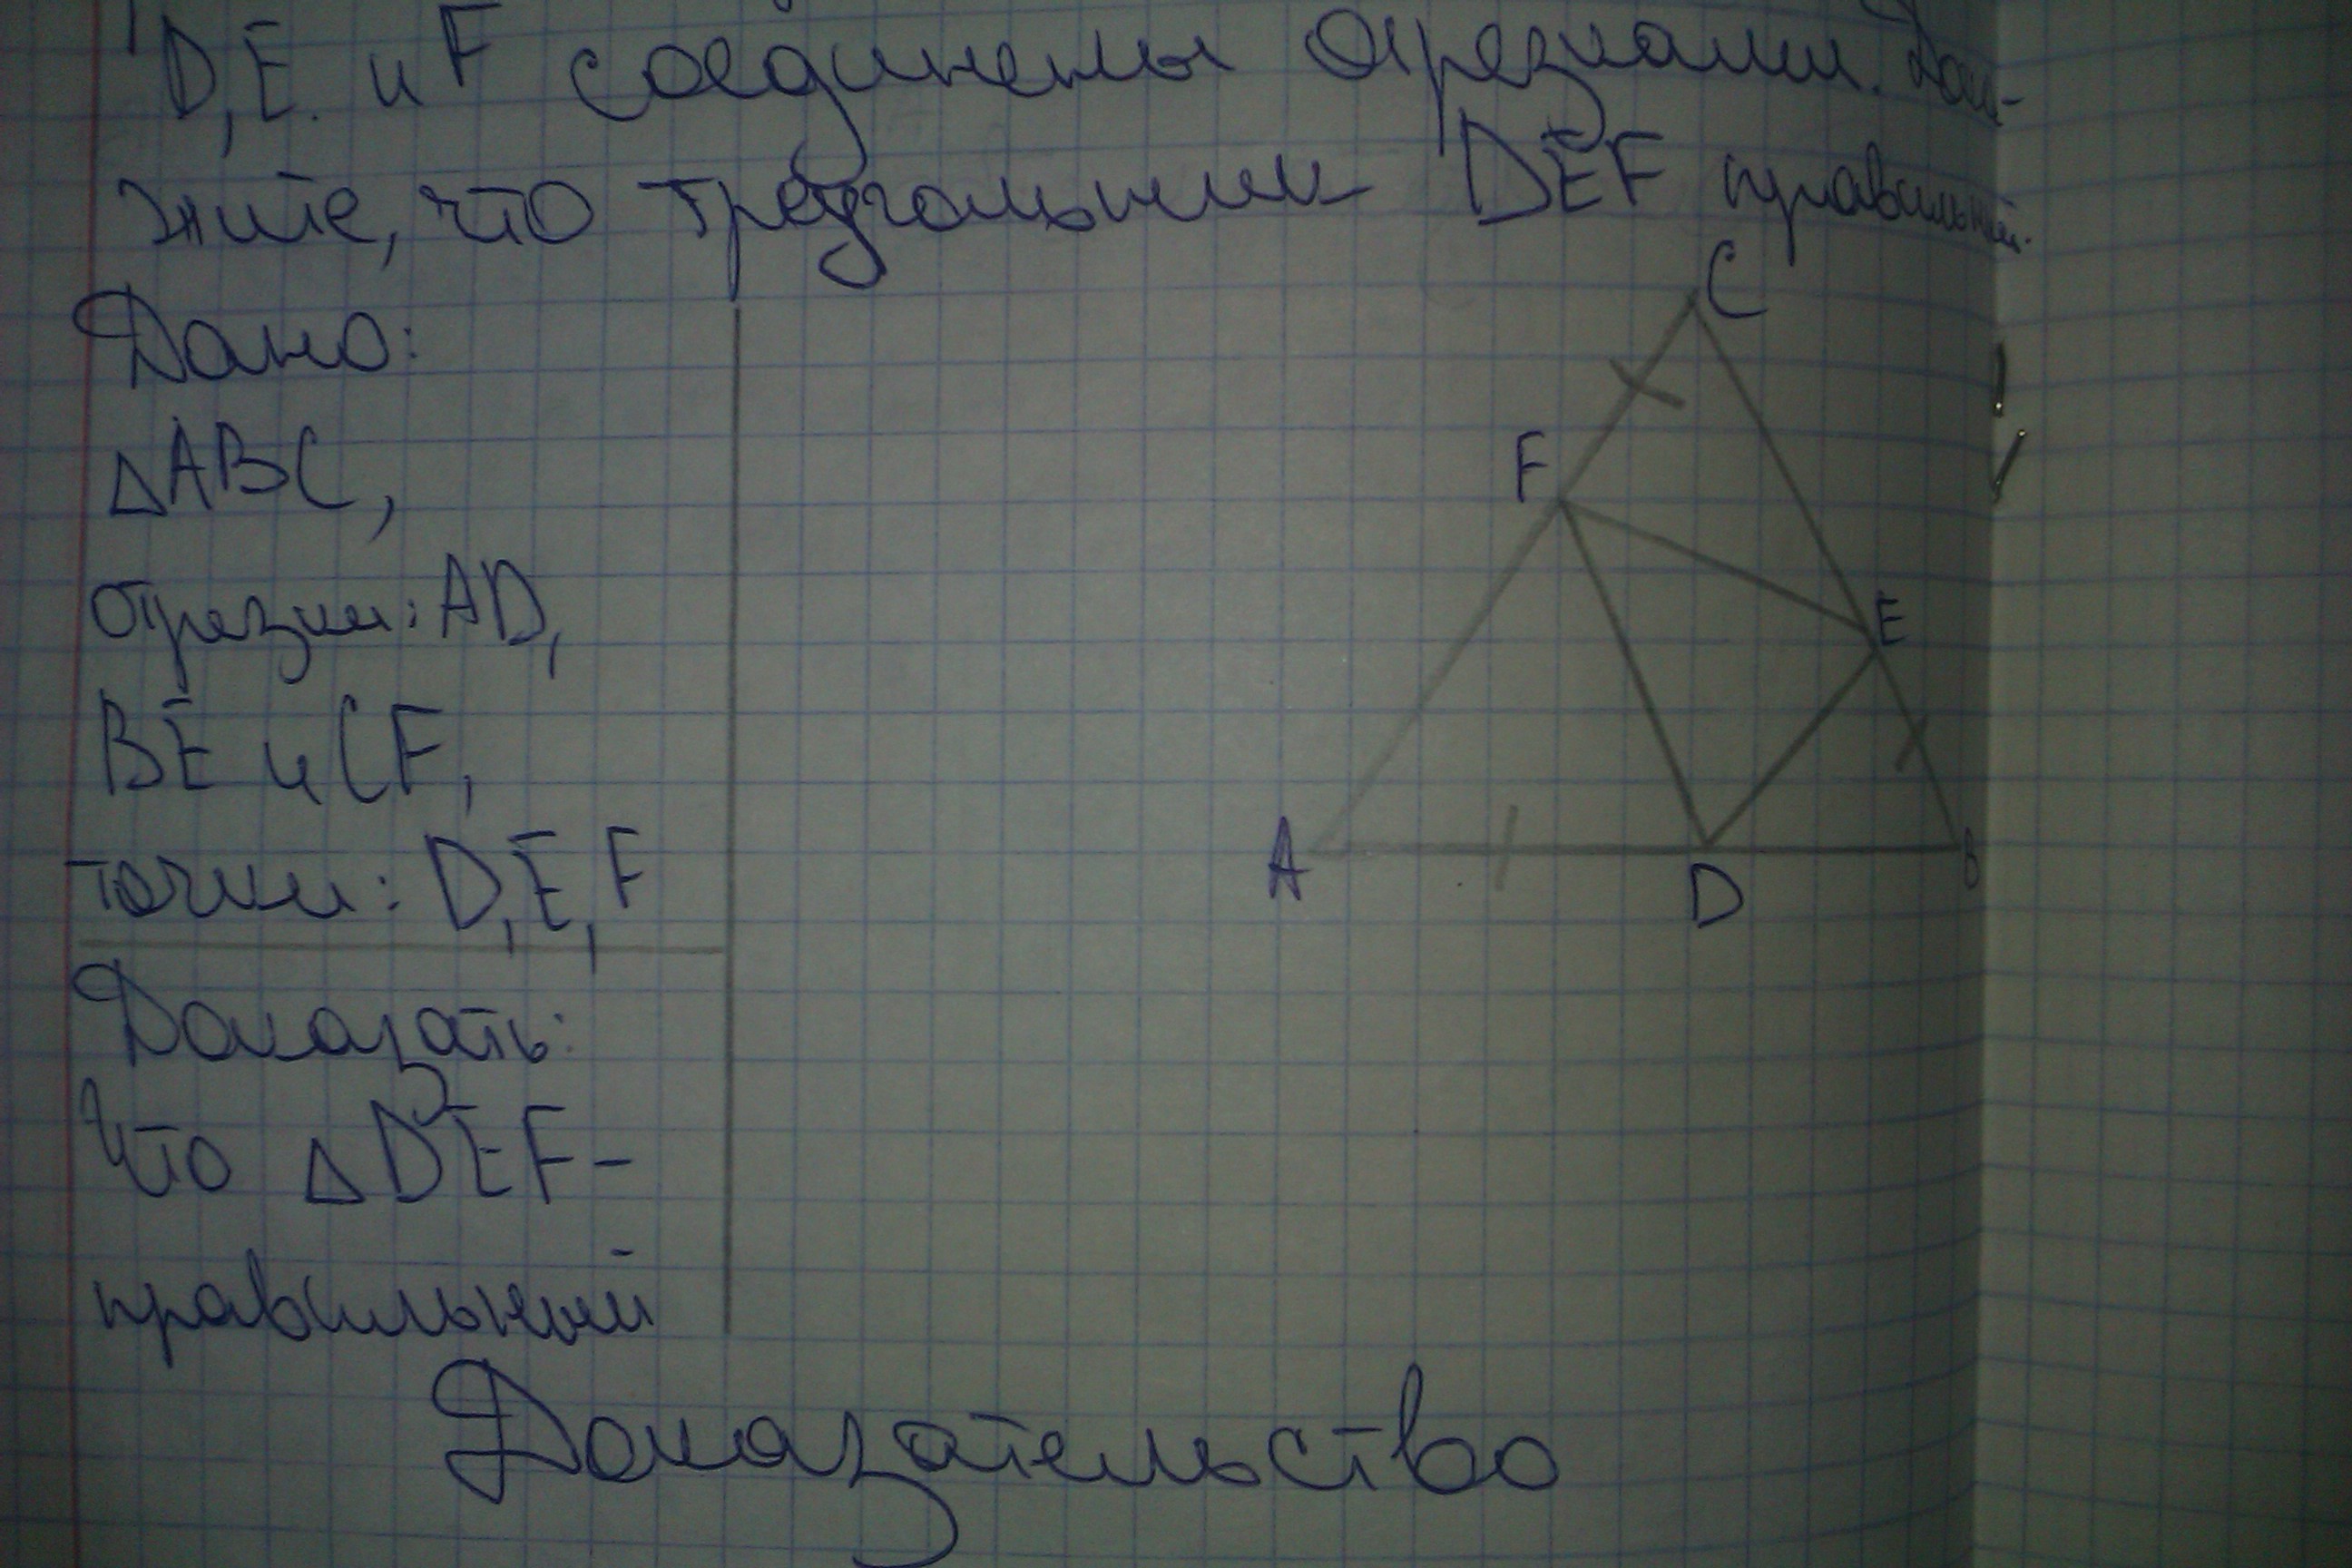 D, E и F соединены отрезками. Дока-
жите, что треугольник DEF правильный.
Дано:
△ABC,
отрезки: AD,
BE и CF,
точки: D, E, F
Доказать:
что △DEF-
правильный
C
F
E
A
D
B
Доказательство